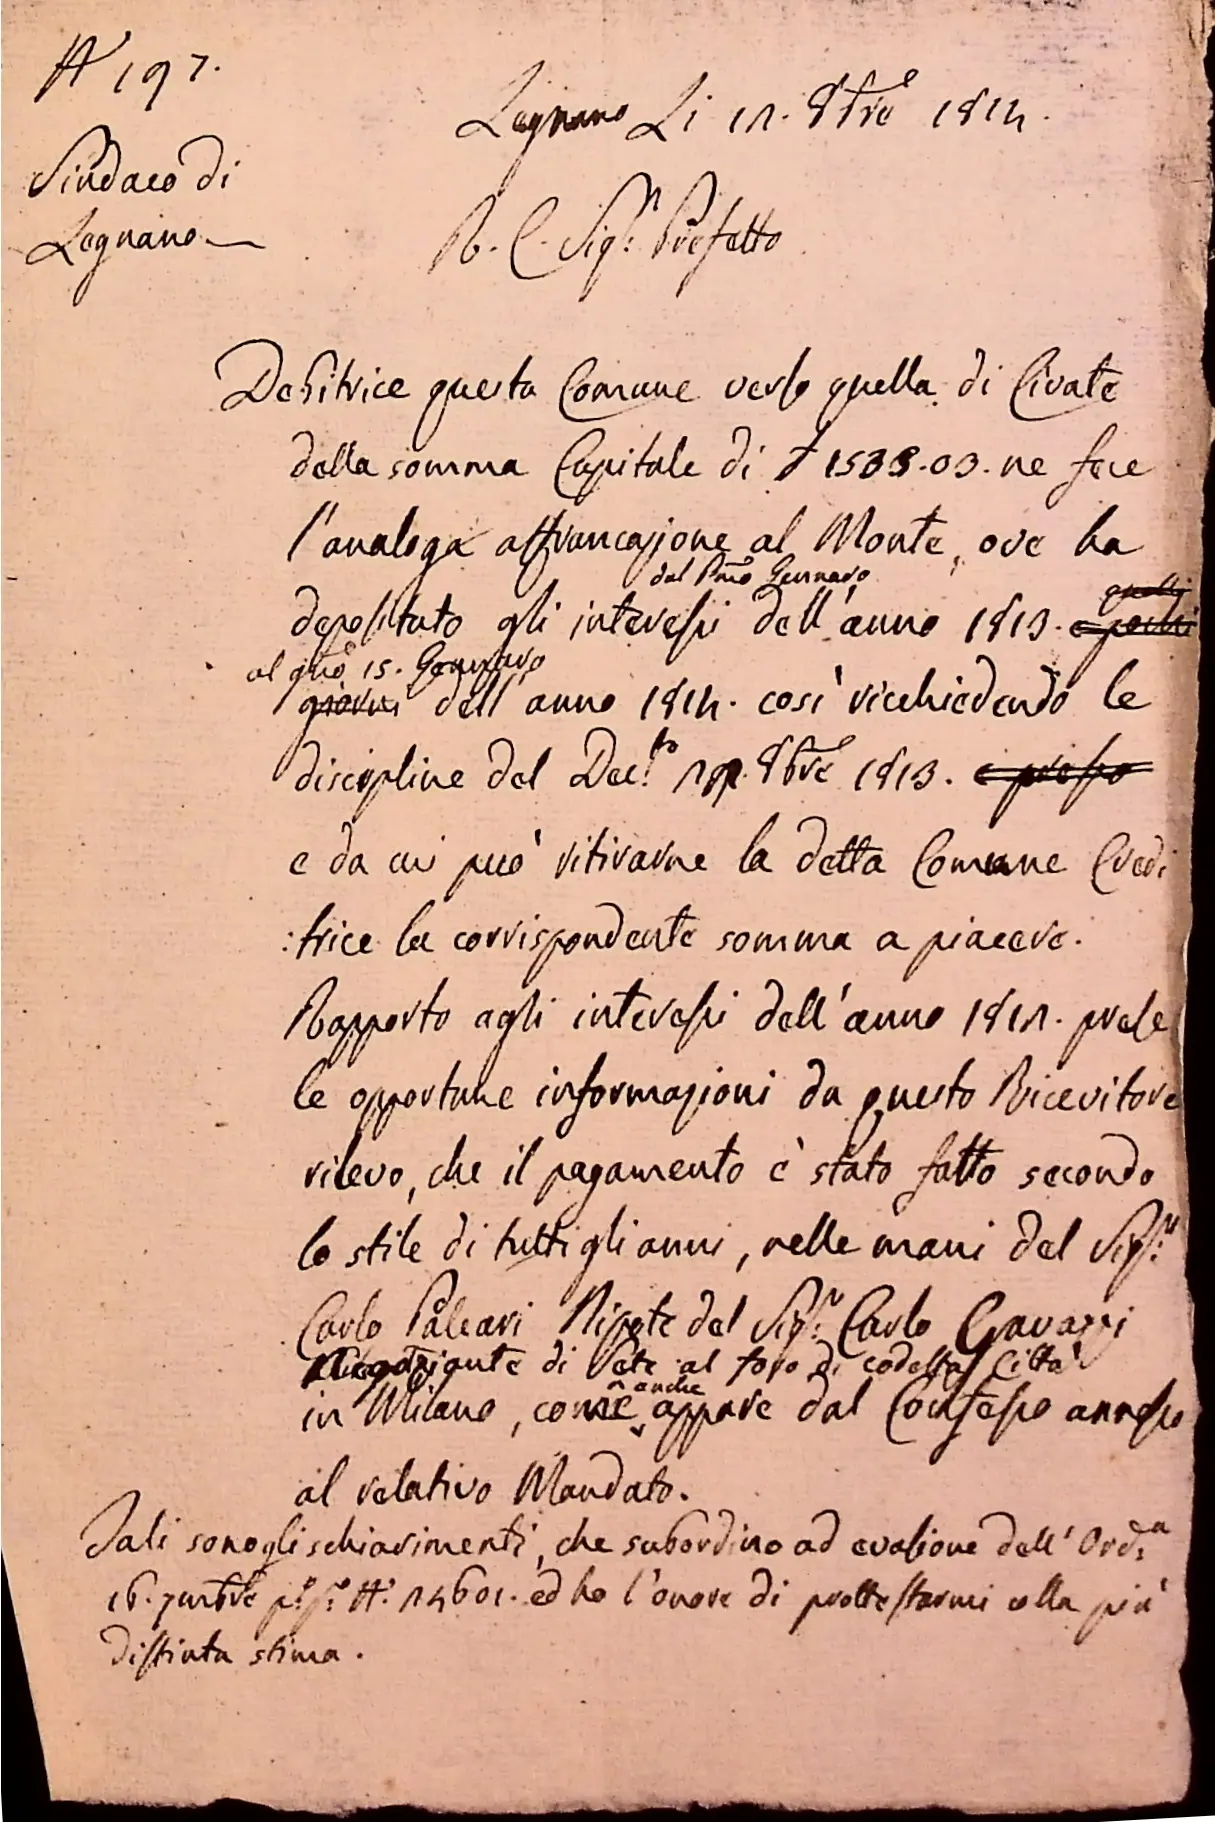 N° 197.
Legnano Li 12. 8bre 1814.
Sindaco di
Legnano
R. C. Sigr. Prefetto
Debitrice questa Comune verso quella di Civate
della somma Capitale di 1533.03. ne fece
l'analoga affrancazione al Monte, ove ha
dal Pmo Gennaro
depositato gli interessi dell'anno 1813. e pochi
quelli
al gno 15. Gennaro
giorni dell'anno 1814. così richiedendo le
discipline del Decto 8bre 1813. e presso
e da cui può ritirarne la detta Comune Credi
:trice la corrispondente somma a piacere.
Rapporto agli interessi dell'anno 1812. prese
le opportune informazioni da questo Ricevitore
rilevo, che il pagamento è stato fatto secondo
lo stile di tutti gli anni, nelle mani del Sigr.
Carlo Paleari Nipote del Sigr. Carlo Gavazzi
Negoziante di Sete al foro di codesta Città
in Milano, come anche appare dal Confesso annesso
al relativo Mandato.
Tali sono gli schiarimenti, che subordino ad evasione dell'Ordza
16. 7mbre p.° p.° N.° 14601. ed ho l'onore di prottestarmi colla più
distinta stima.